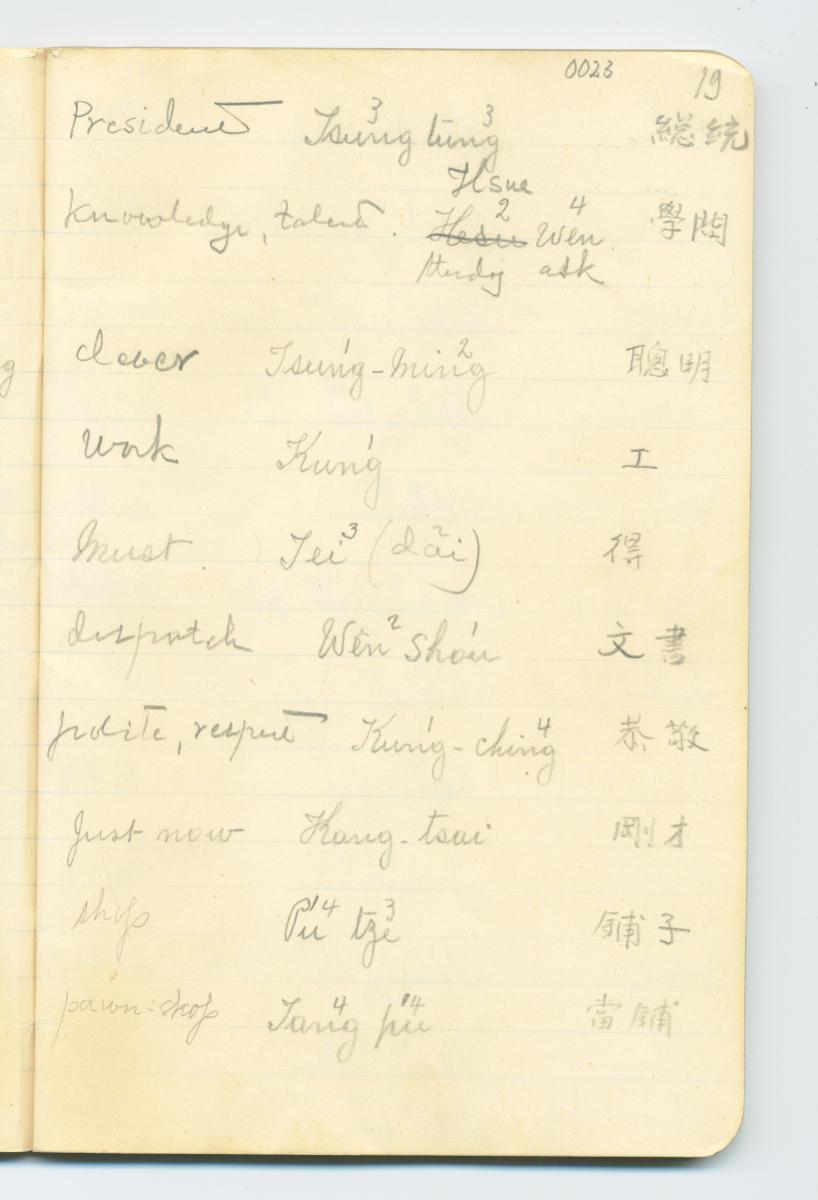 0023 19
President Tsung³ tung³ 総統
Hsue
Knowledge, talent. Hesu² Wên⁴ 學問
study ask
clever Tsung¹-ming² 聰明
work Kung¹ 工
must Tei³ (dãi) 得
dispatch Wên² shou¹ 文書
polite, respect Kung¹-ching⁴ 恭敬
just now Kang-tsai 剛才
shop P'u⁴ tze³ 鋪子
pawn-shop Tang⁴ p'u⁴ 當鋪
g